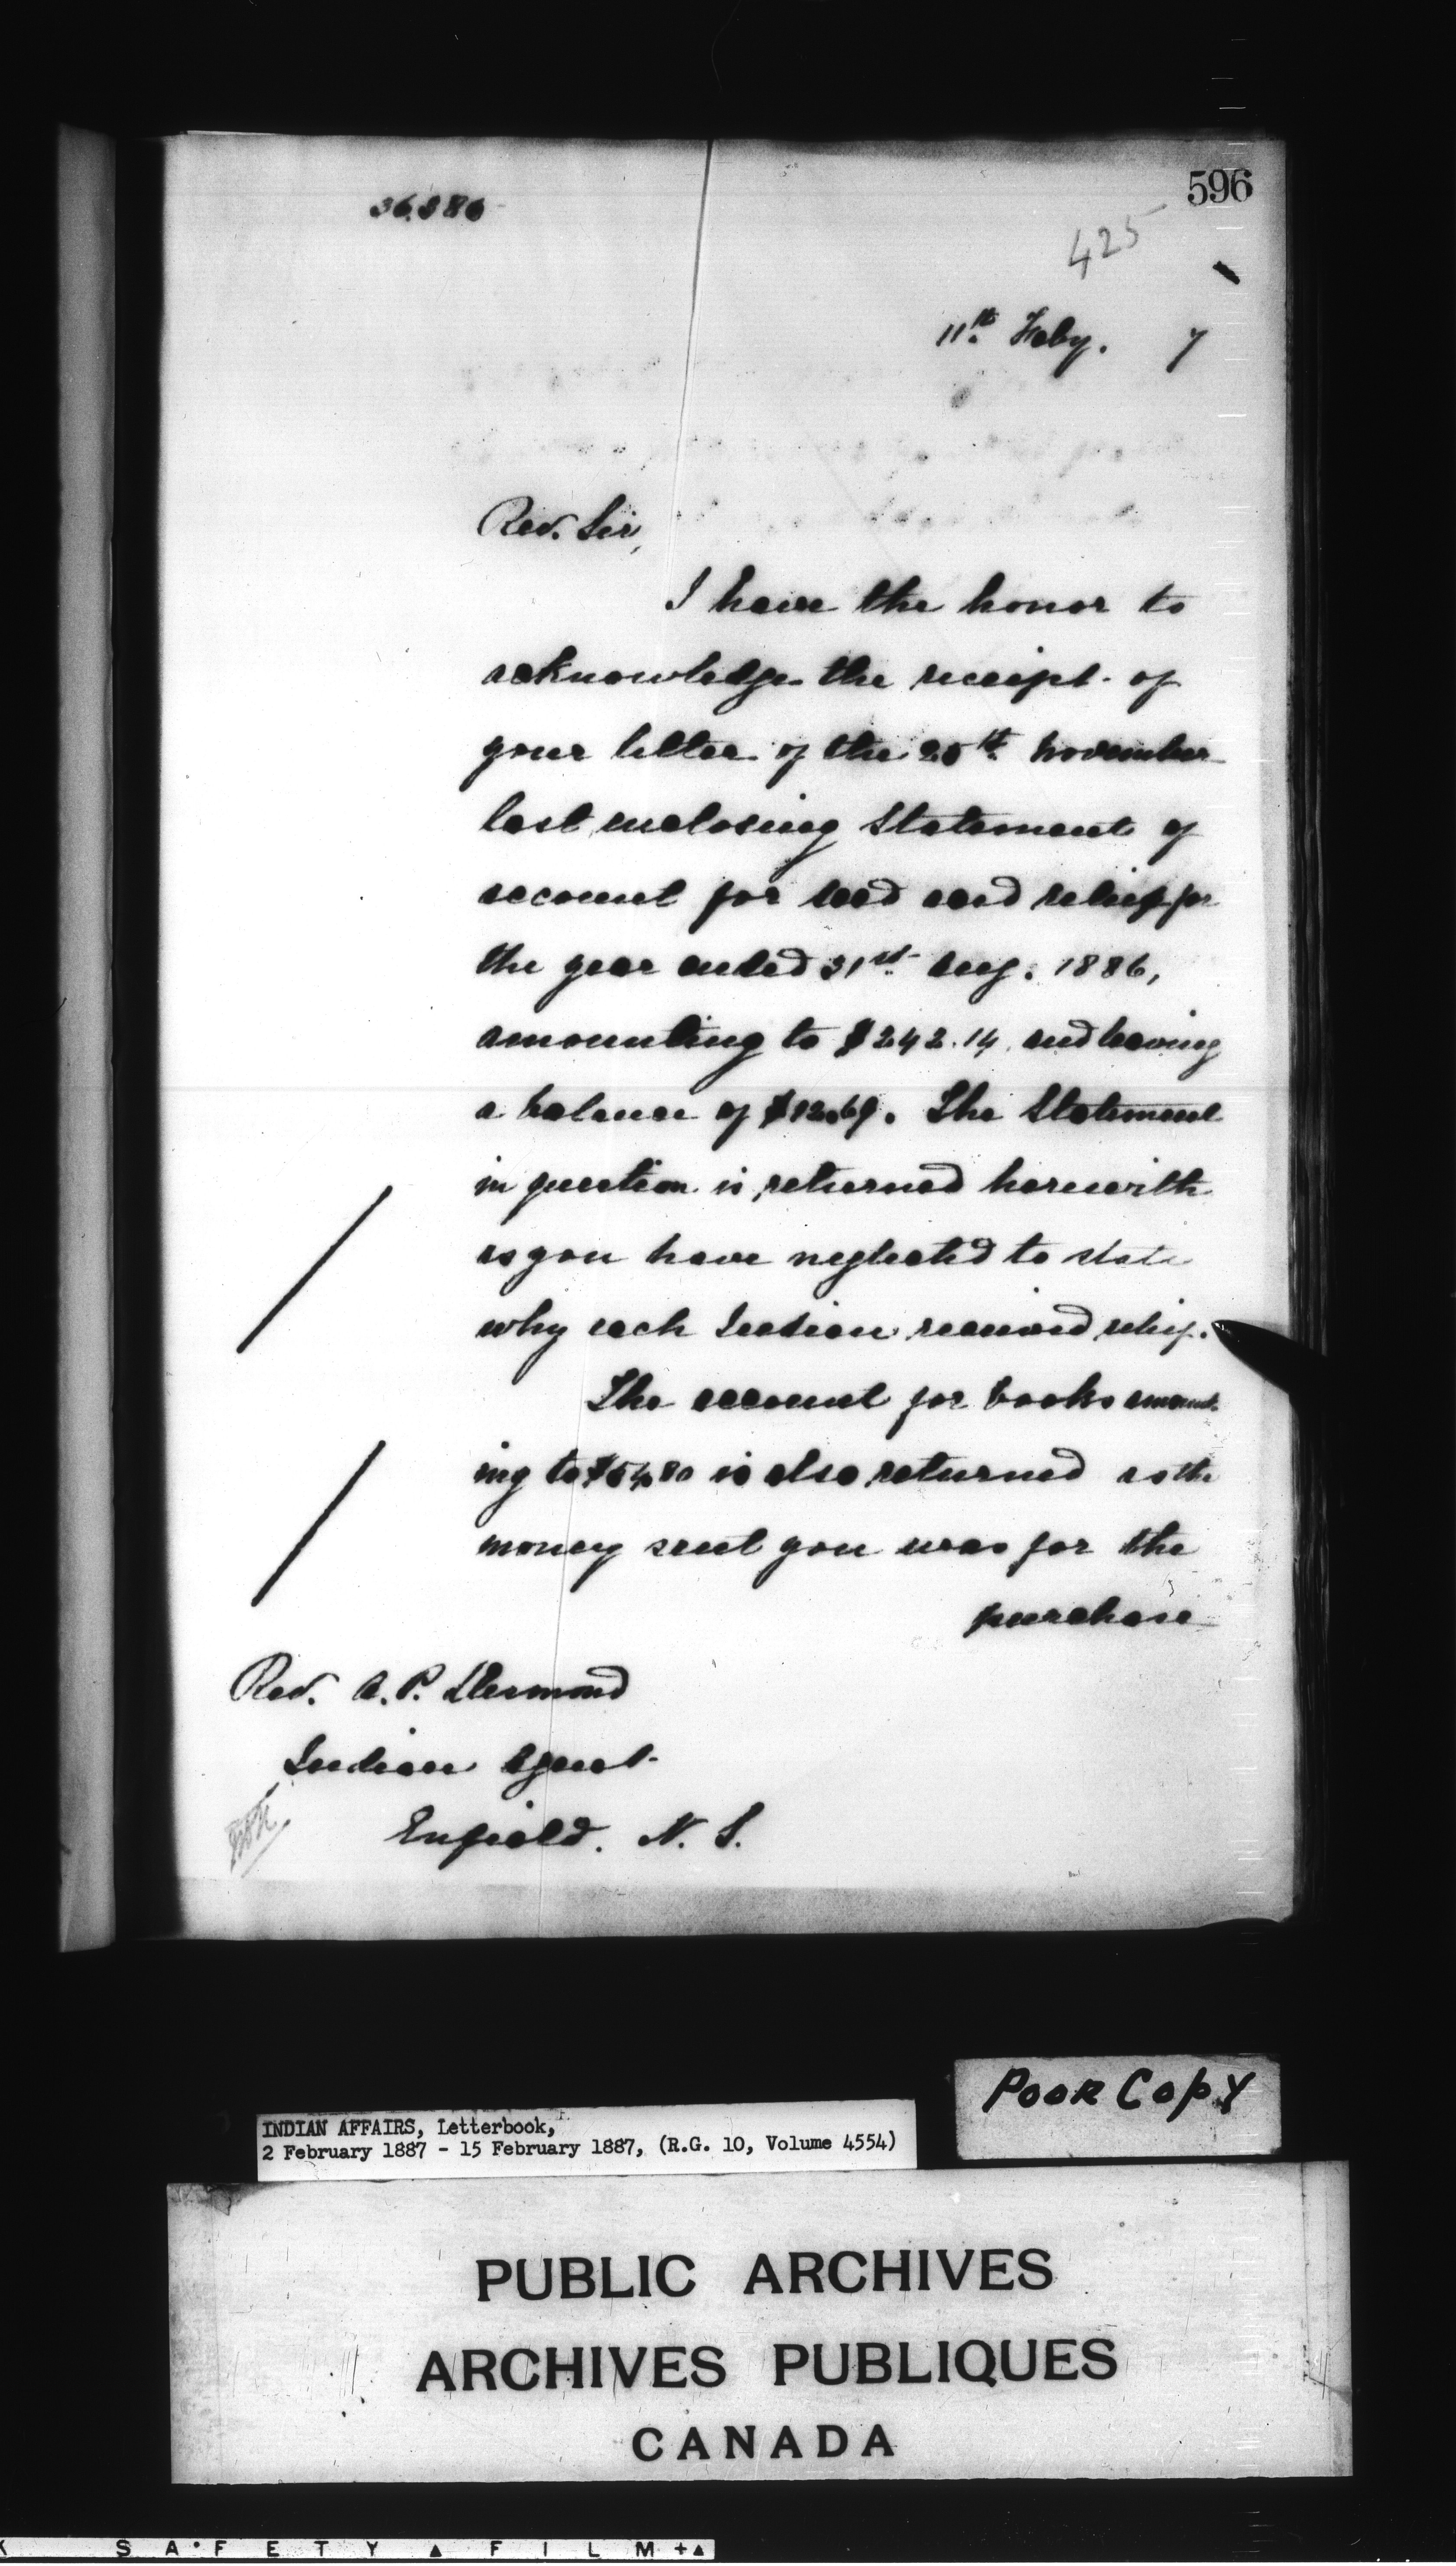 596
36.386
425
11th Feby. 7
Rev. Sir,
I have the honor to
acknowledge the receipt of
your letter of the 20th November
last enclosing Statement of
account for seed and relief for
the year ended 31st Aug. 1886,
amounting to $242.14, and leaving
a balance of $12.69. The Statement
in question is returned herewith
as you have neglected to state
why each Indian received relief.
The account for books amount-
ing to $54.80 is also returned as the
money sent you was for the
purchase
Rev. A. P. Desmond
Indian Agent
Enfield. N. S.
POOR COPY
INDIAN AFFAIRS, Letterbook,
2 February 1887 - 15 February 1887, (R.G. 10, Volume 4554)
PUBLIC ARCHIVES
ARCHIVES PUBLIQUES
CANADA
SAFETY FILM